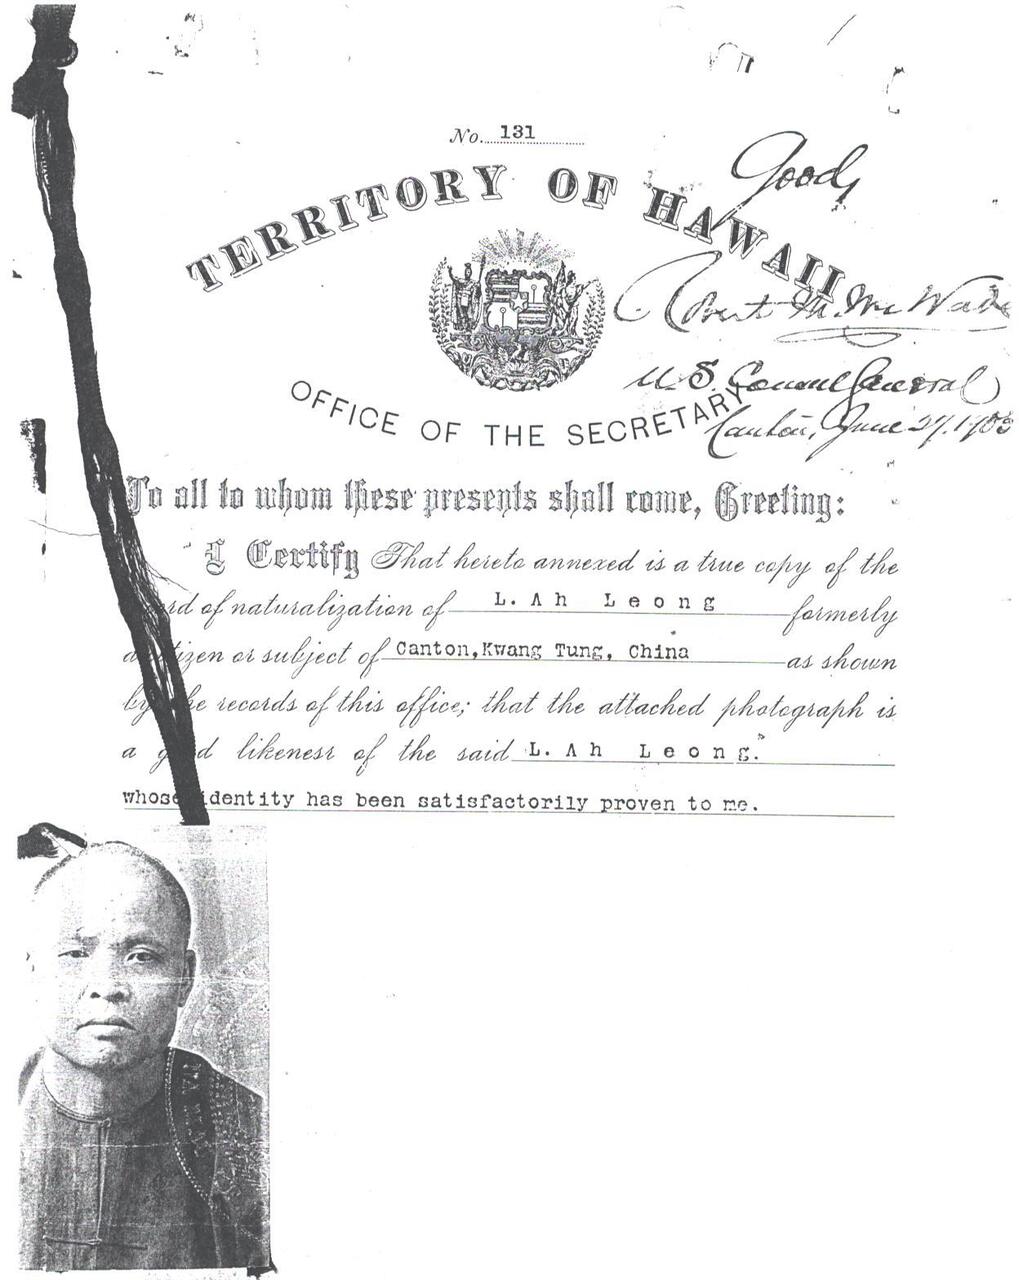 No. 131
TERRITORY OF HAWAII
OFFICE OF THE SECRETARY
Good,
Robert M. McWade
U.S. Consul General
Canton, June 27, 1903
To all to whom these presents shall come, Greeting:
I Certify That hereto annexed is a true copy of the
rd of naturalization of L. Ah Leong formerly
a tizen or subject of Canton, Kwang Tung, China as shown
by he records of this office; that the attached photograph is
a g d likeness of the said L. Ah Leong.
whose identity has been satisfactorily proven to me.